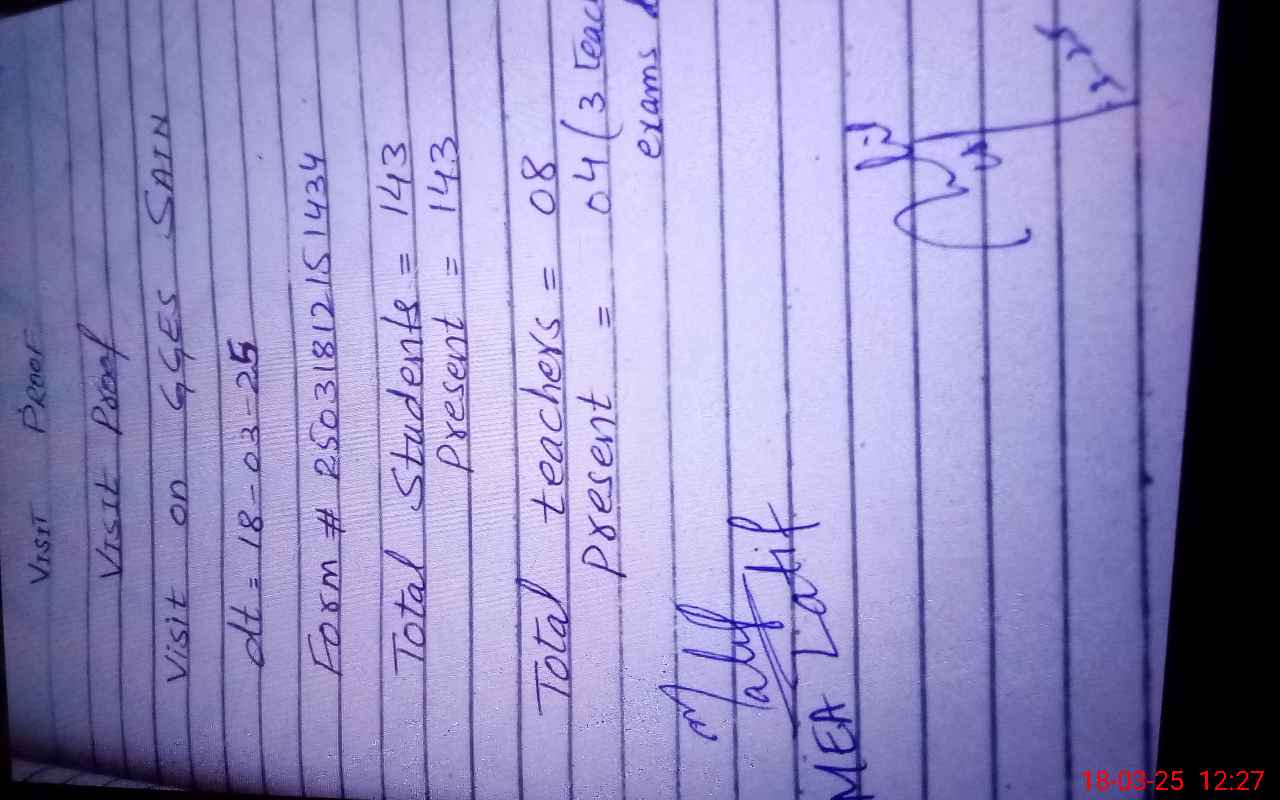 VISIT PROOF
VISIT Proof
Visit on GGES SAIN
dt = 18-03-25
Form # 25031812151434
Total Students = 143
Present = 143
Total teachers = 08
Present = 04 (3
exams
MEA Latif
18-03-25 12:27